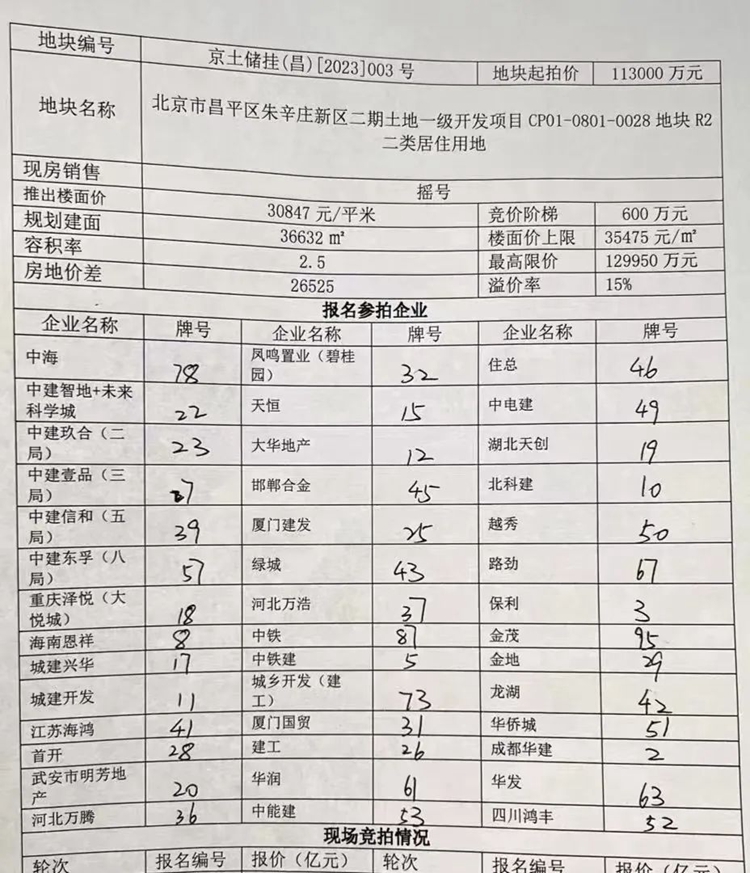 地块编号 京土储挂(昌)[2023]003号 地块起拍价 113000万元
地块名称 北京市昌平区朱辛庄新区二期土地一级开发项目 CP01-0801-0028地块 R2
二类居住用地
现房销售
推出楼面价 摇号
规划建面 30847元/平米 竞价阶梯 600万元
容积率 36632㎡ 楼面价上限 35475元/㎡
房地价差 2.5 最高限价 129950万元
26525 溢价率 15%
报名参拍企业
企业名称 牌号 企业名称 牌号 企业名称 牌号
中海 78 凤鸣置业（碧桂园） 32 住总 46
中建智地+未来科学城 22 天恒 15 中电建 49
中建玖合（二局） 23 大华地产 12 湖北天创 19
中建壹品（三局） 7 邯郸合金 45 北科建 10
中建信和（五局） 39 厦门建发 25 越秀 50
中建东孚（八局） 57 绿城 43 路劲 67
重庆泽悦（大悦城） 18 河北万浩 37 保利 3
海南恩祥 8 中铁 87 金茂 95
城建兴华 17 中铁建 5 金地 29
城建开发 11 城乡开发（建工） 73 龙湖 42
江苏海鸿 41 厦门国贸 31 华侨城 51
首开 28 建工 26 成都华建 2
武安市明芳地产 20 华润 61 华发 63
河北万腾 36 中能建 53 四川鸿丰 52
现场竞拍情况
轮次 报名编号 报价（亿元） 轮次 报名编号 报价（亿元）